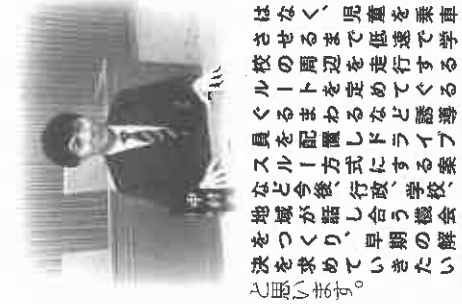 はなく、児童を乗車
させるまで低速で学
校の周辺を走行する
ルートを定めてぐる
ぐるまわるなど誘導
員を配置しドライブ
スルー方式にする案
など今後、行政、学校、
地域が話し合う機会
をつくり、早期の解
決を求めていきたい
と思います。